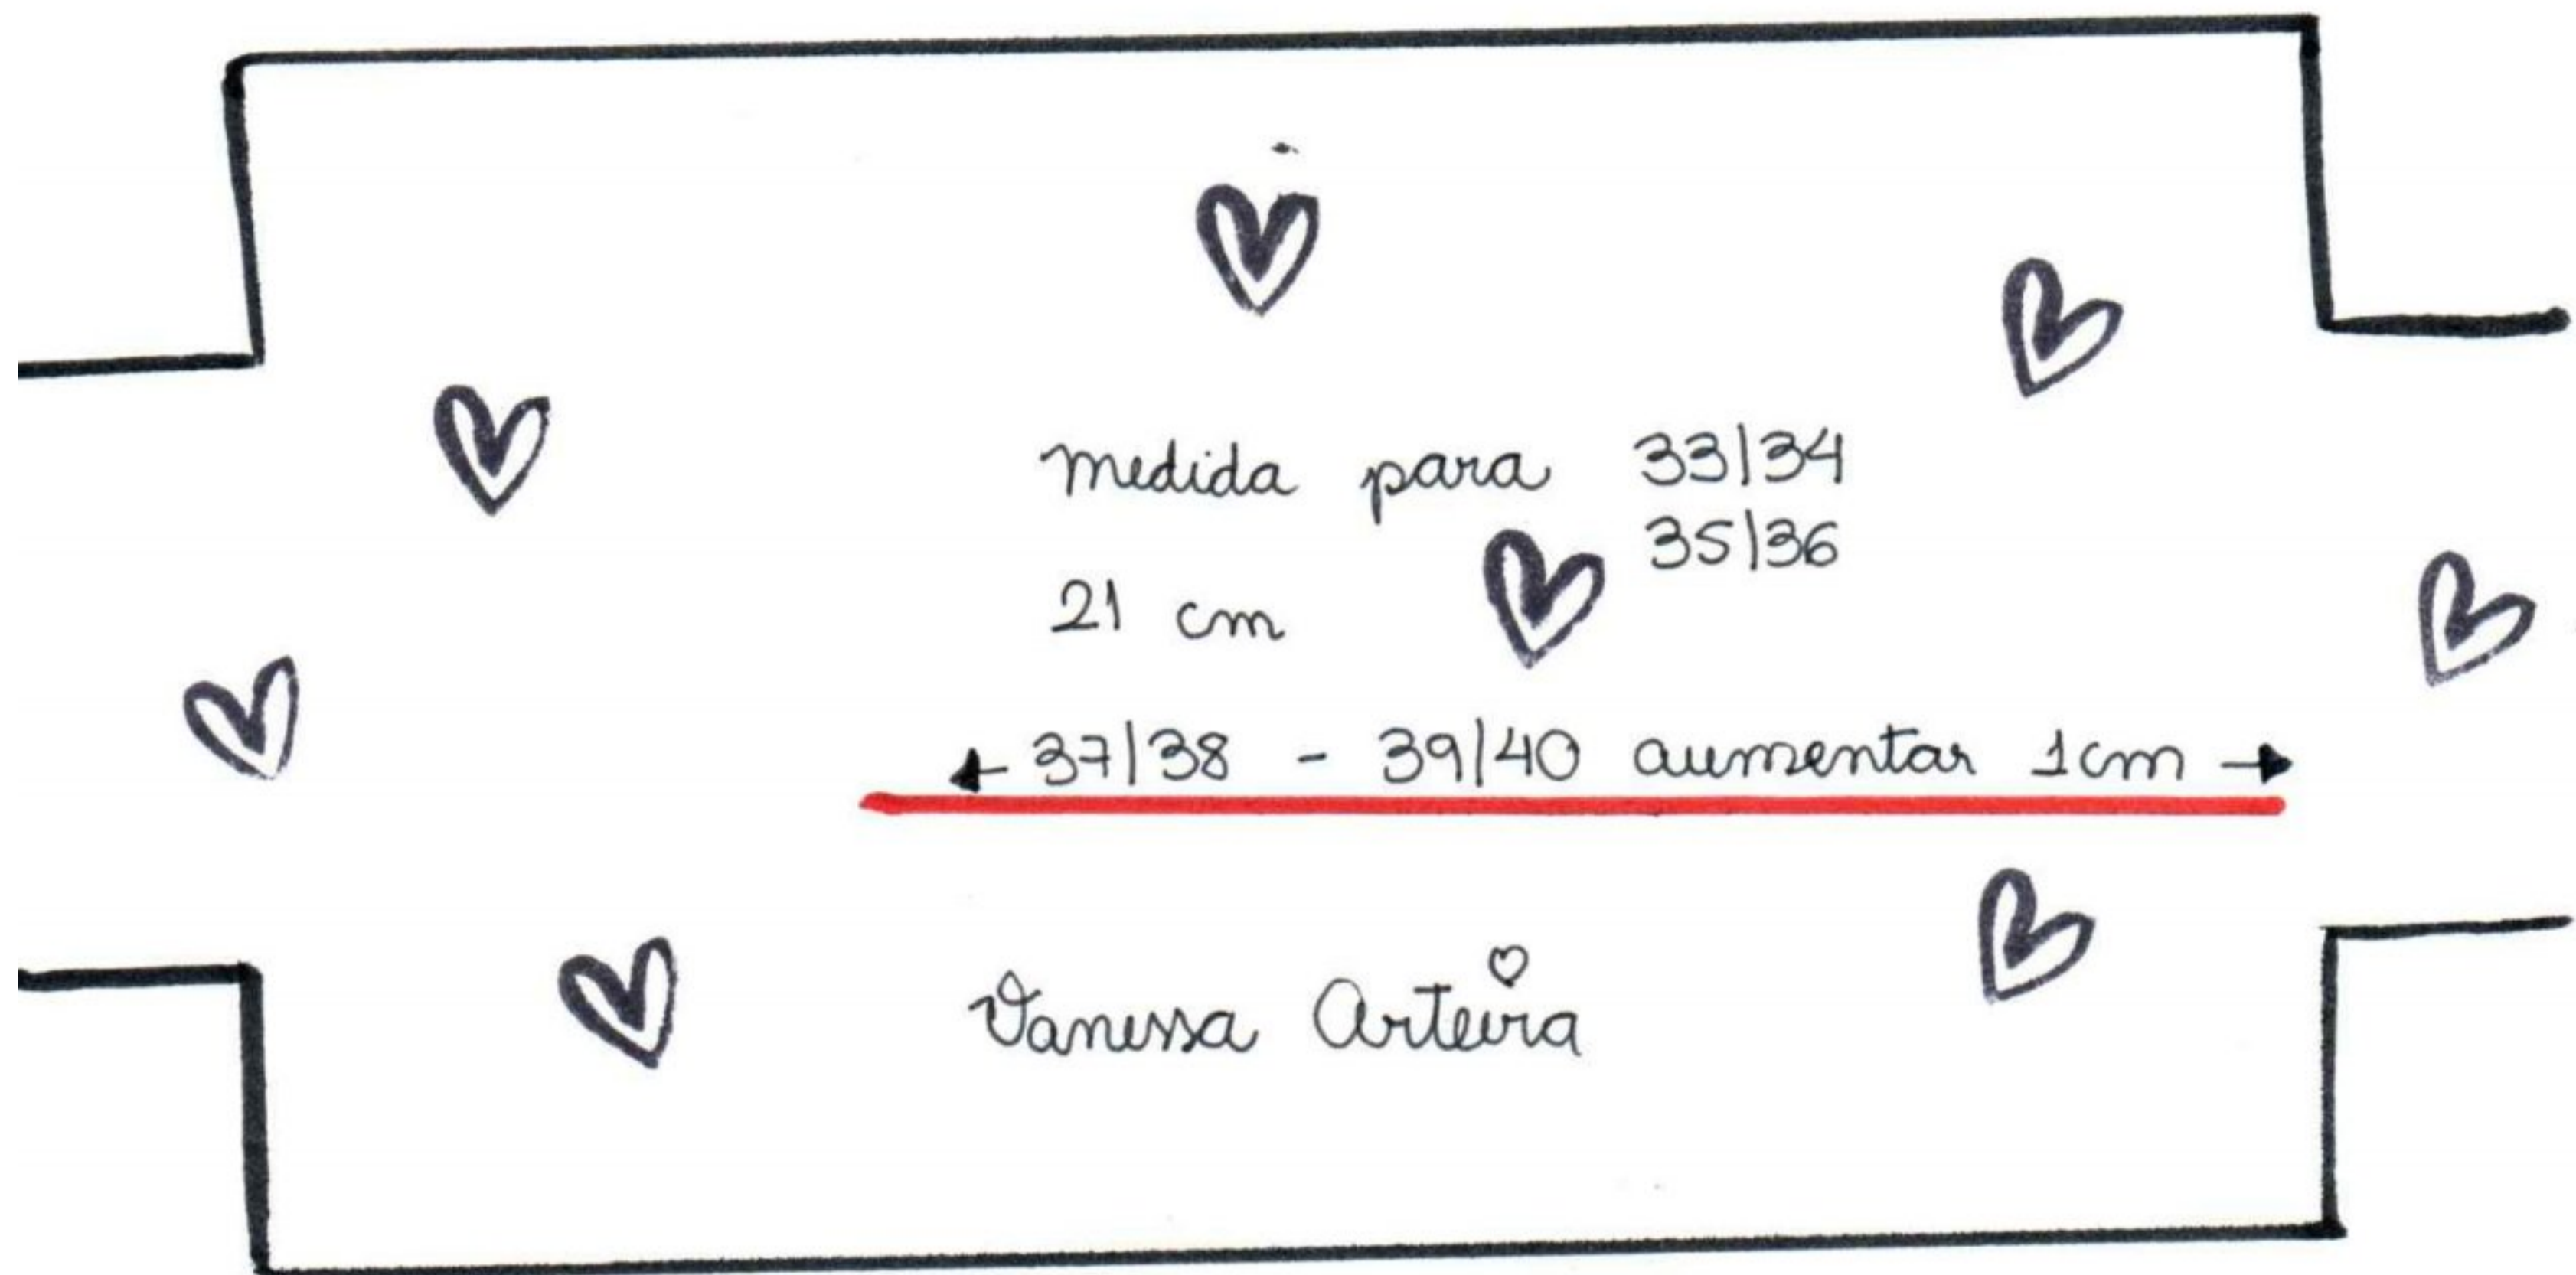 medida para 33|34
35|36
21 cm
37|38 - 39|40 aumentar 1cm
Vanessa Arteira